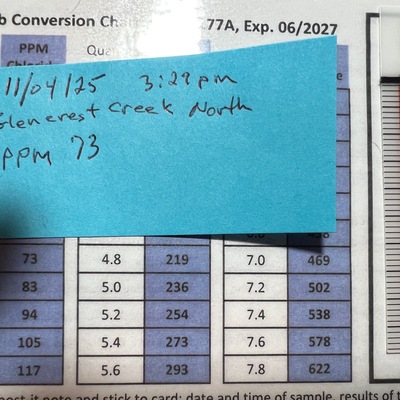 b Conversion Ch 77A, Exp. 06/2027
PPM Qua
11/04/25 3:29pm
Glencrest Creek North
PPM 73
73 4.8 219 7.0 469
83 5.0 236 7.2 502
94 5.2 254 7.4 538
105 5.4 273 7.6 578
117 5.6 293 7.8 622
post-it note and stick to card: date and time of sample, results of t